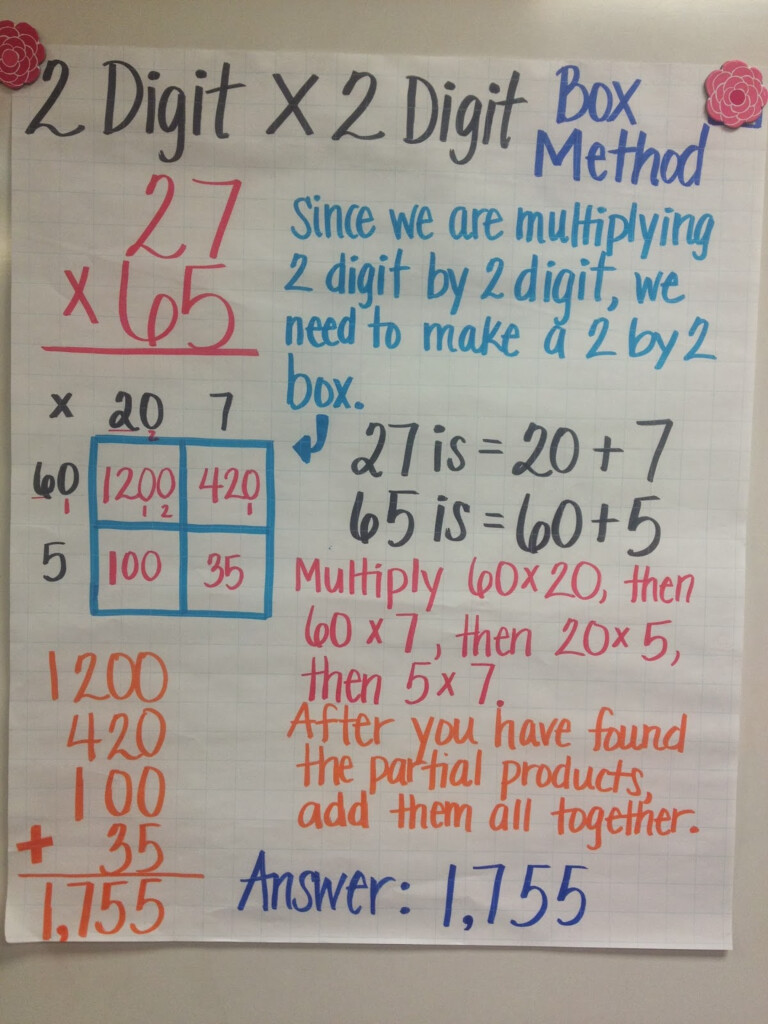 2 Digit X 2 Digit Box
Method
27
x65
Since we are multiplying
2 digit by 2 digit, we
need to make a 2 by 2
box.
x 20 7
2
60 1200 420
1 1 2 1
5 100 35
27 is = 20 + 7
65 is = 60+5
Multiply 60x20, then
60 x 7, then 20x 5,
then 5x 7.
1200
420
100
+ 35
1,755
After you have found
the partial products,
add them all together.
Answer: 1,755